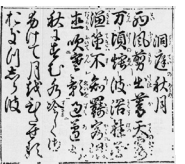 洞庭秋月
西風剪出暮天霞
万頃煙波浴桂花
漁笛不知羈客恨
直吹寒影過蘆
秋にすむ水冷しくさ夜
ふけて月をひたせる
おきつしら波